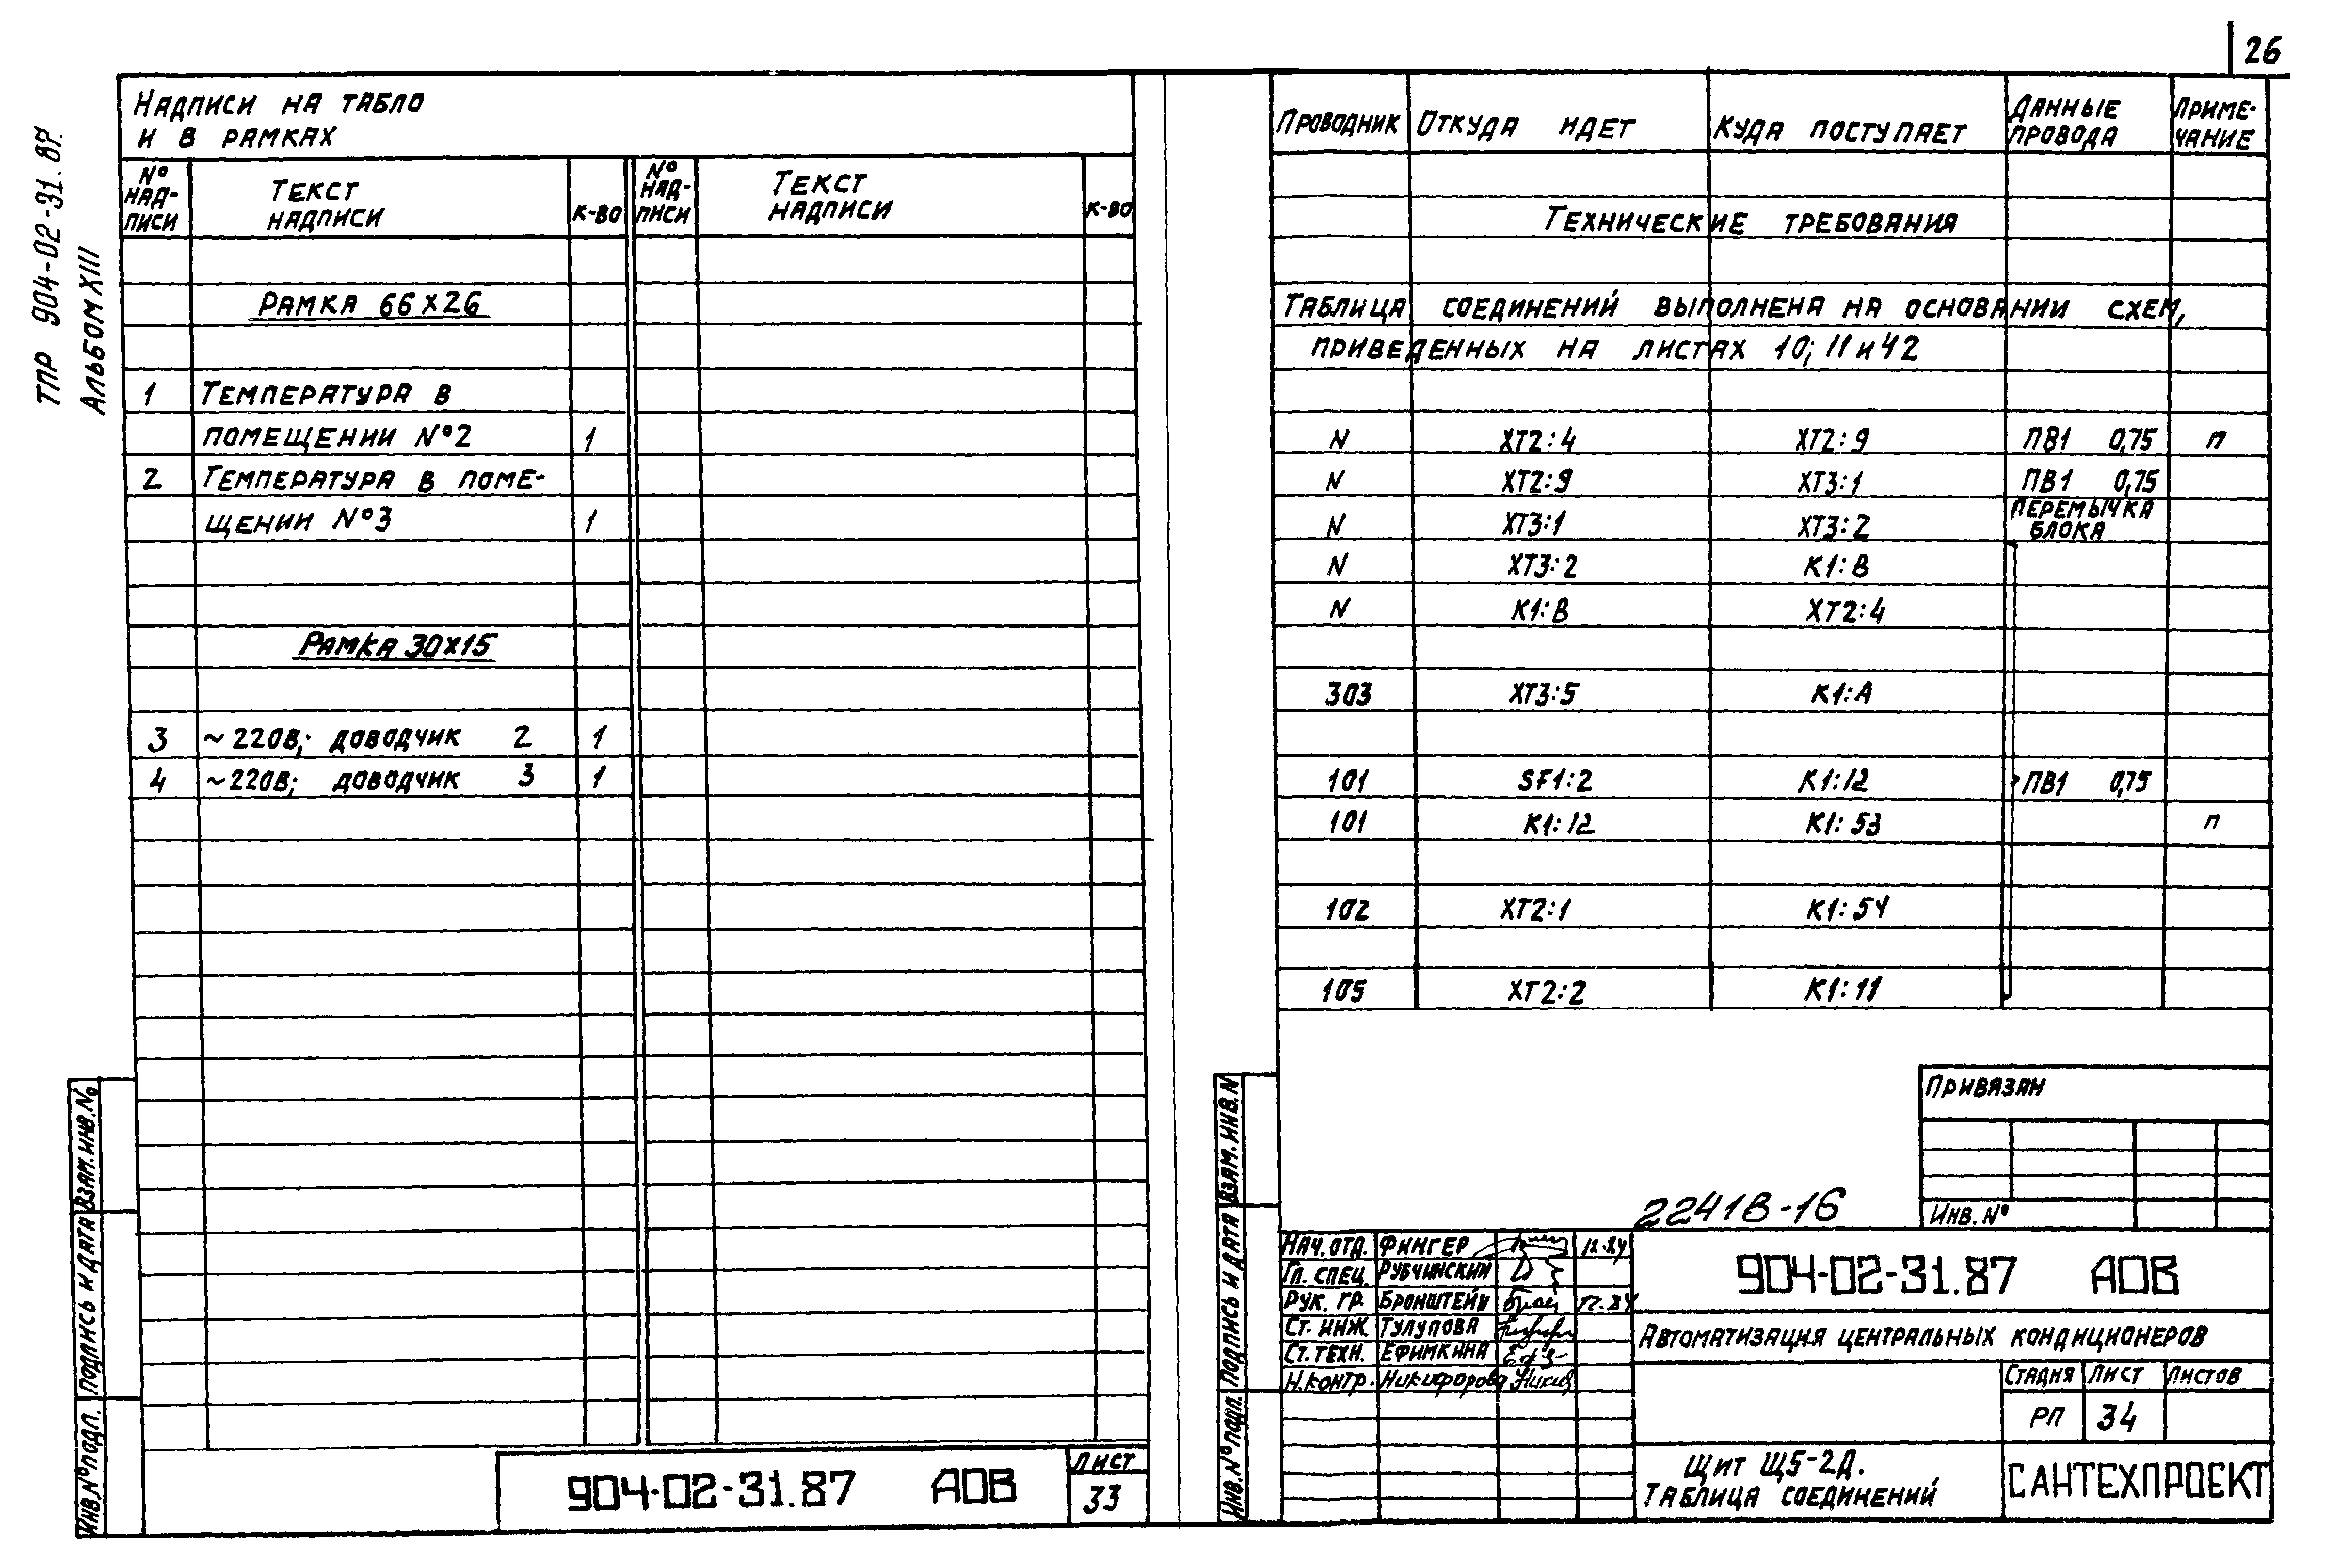 26
ТПР 904-02-31.87.
Альбом XIII
Надписи на табло
и в рамках
№ надписи Текст надписи к-во № надписи Текст надписи к-во
Рамка 66х26
1 Температура в
помещении №2 1
2 Температура в поме-
щении №3 1
Рамка 30х15
3 ~220В; доводчик 2 1
4 ~220В; доводчик 3 1
Взам.инв.№
Подпись и дата
Инв.№подл.
904-02-31.87 АОВ
Лист
33
Проводник Откуда идет Куда поступает Данные провода Приме-чание
Технические требования
Таблица соединений выполнена на основании схем,
приведенных на листах 10; 11 и 42
N ХТ2:4 ХТ2:9 ПВ1 0,75 п
N ХТ2:9 ХТ3:1 ПВ1 0,75
N ХТ3:1 ХТ3:2 Перемычка блока
N ХТ3:2 К1:В
N К1:В ХТ2:4
303 ХТ3:5 К1:А
101 SF1:2 К1:12 ПВ1 0,75
101 К1:12 К1:53 п
102 ХТ2:1 К1:54
105 ХТ2:2 К1:11
Взам.инв.N
Подпись и дата
Инв.№подл.
Привязан
Инв.№
22418-16
Нач.отд. Фингер 12.84
Гл.спец. Рубчинский
Рук.гр. Бронштейн 12.84
Ст.инж. Тулупова
Ст.техн. Ефимкина
Н.контр. Никифорова
904-02-31.87 АОВ
Автоматизация центральных кондиционеров
Стадия Лист Листов
РП 34
Щит Щ5-2Д.
Таблица соединений
САНТЕХПРОЕКТ